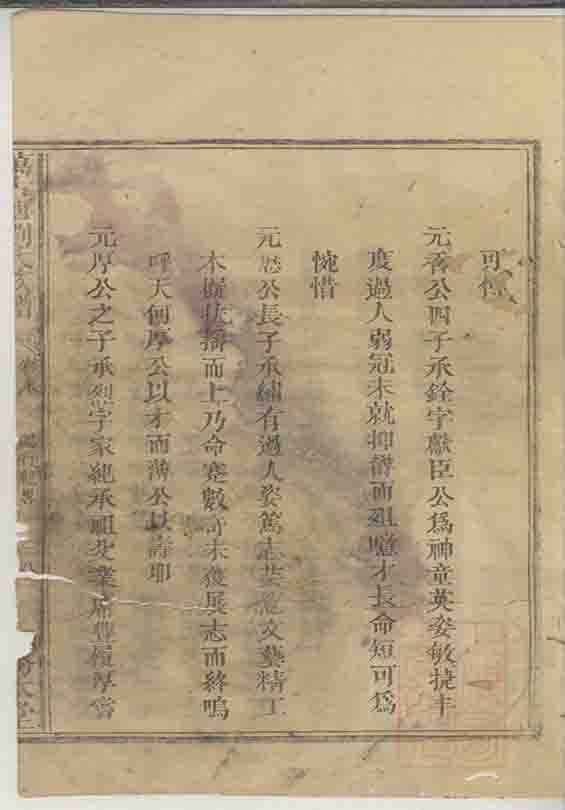 可
元善公四子承銓字獻臣公為神童英姿敏捷丰
度過人弱冠未就抑鬱而殂噫才長命短可為
惋惜
元 公長子承繡有過人姿篤志芸 文藝精工
木 扶搖而上乃命蹇數奇未獲展志而終嗚
呼天何厚公以才而薄公以壽耶
元厚公之子承烈字家純承祖父業席豐履厚嘗
萬 劉氏族譜